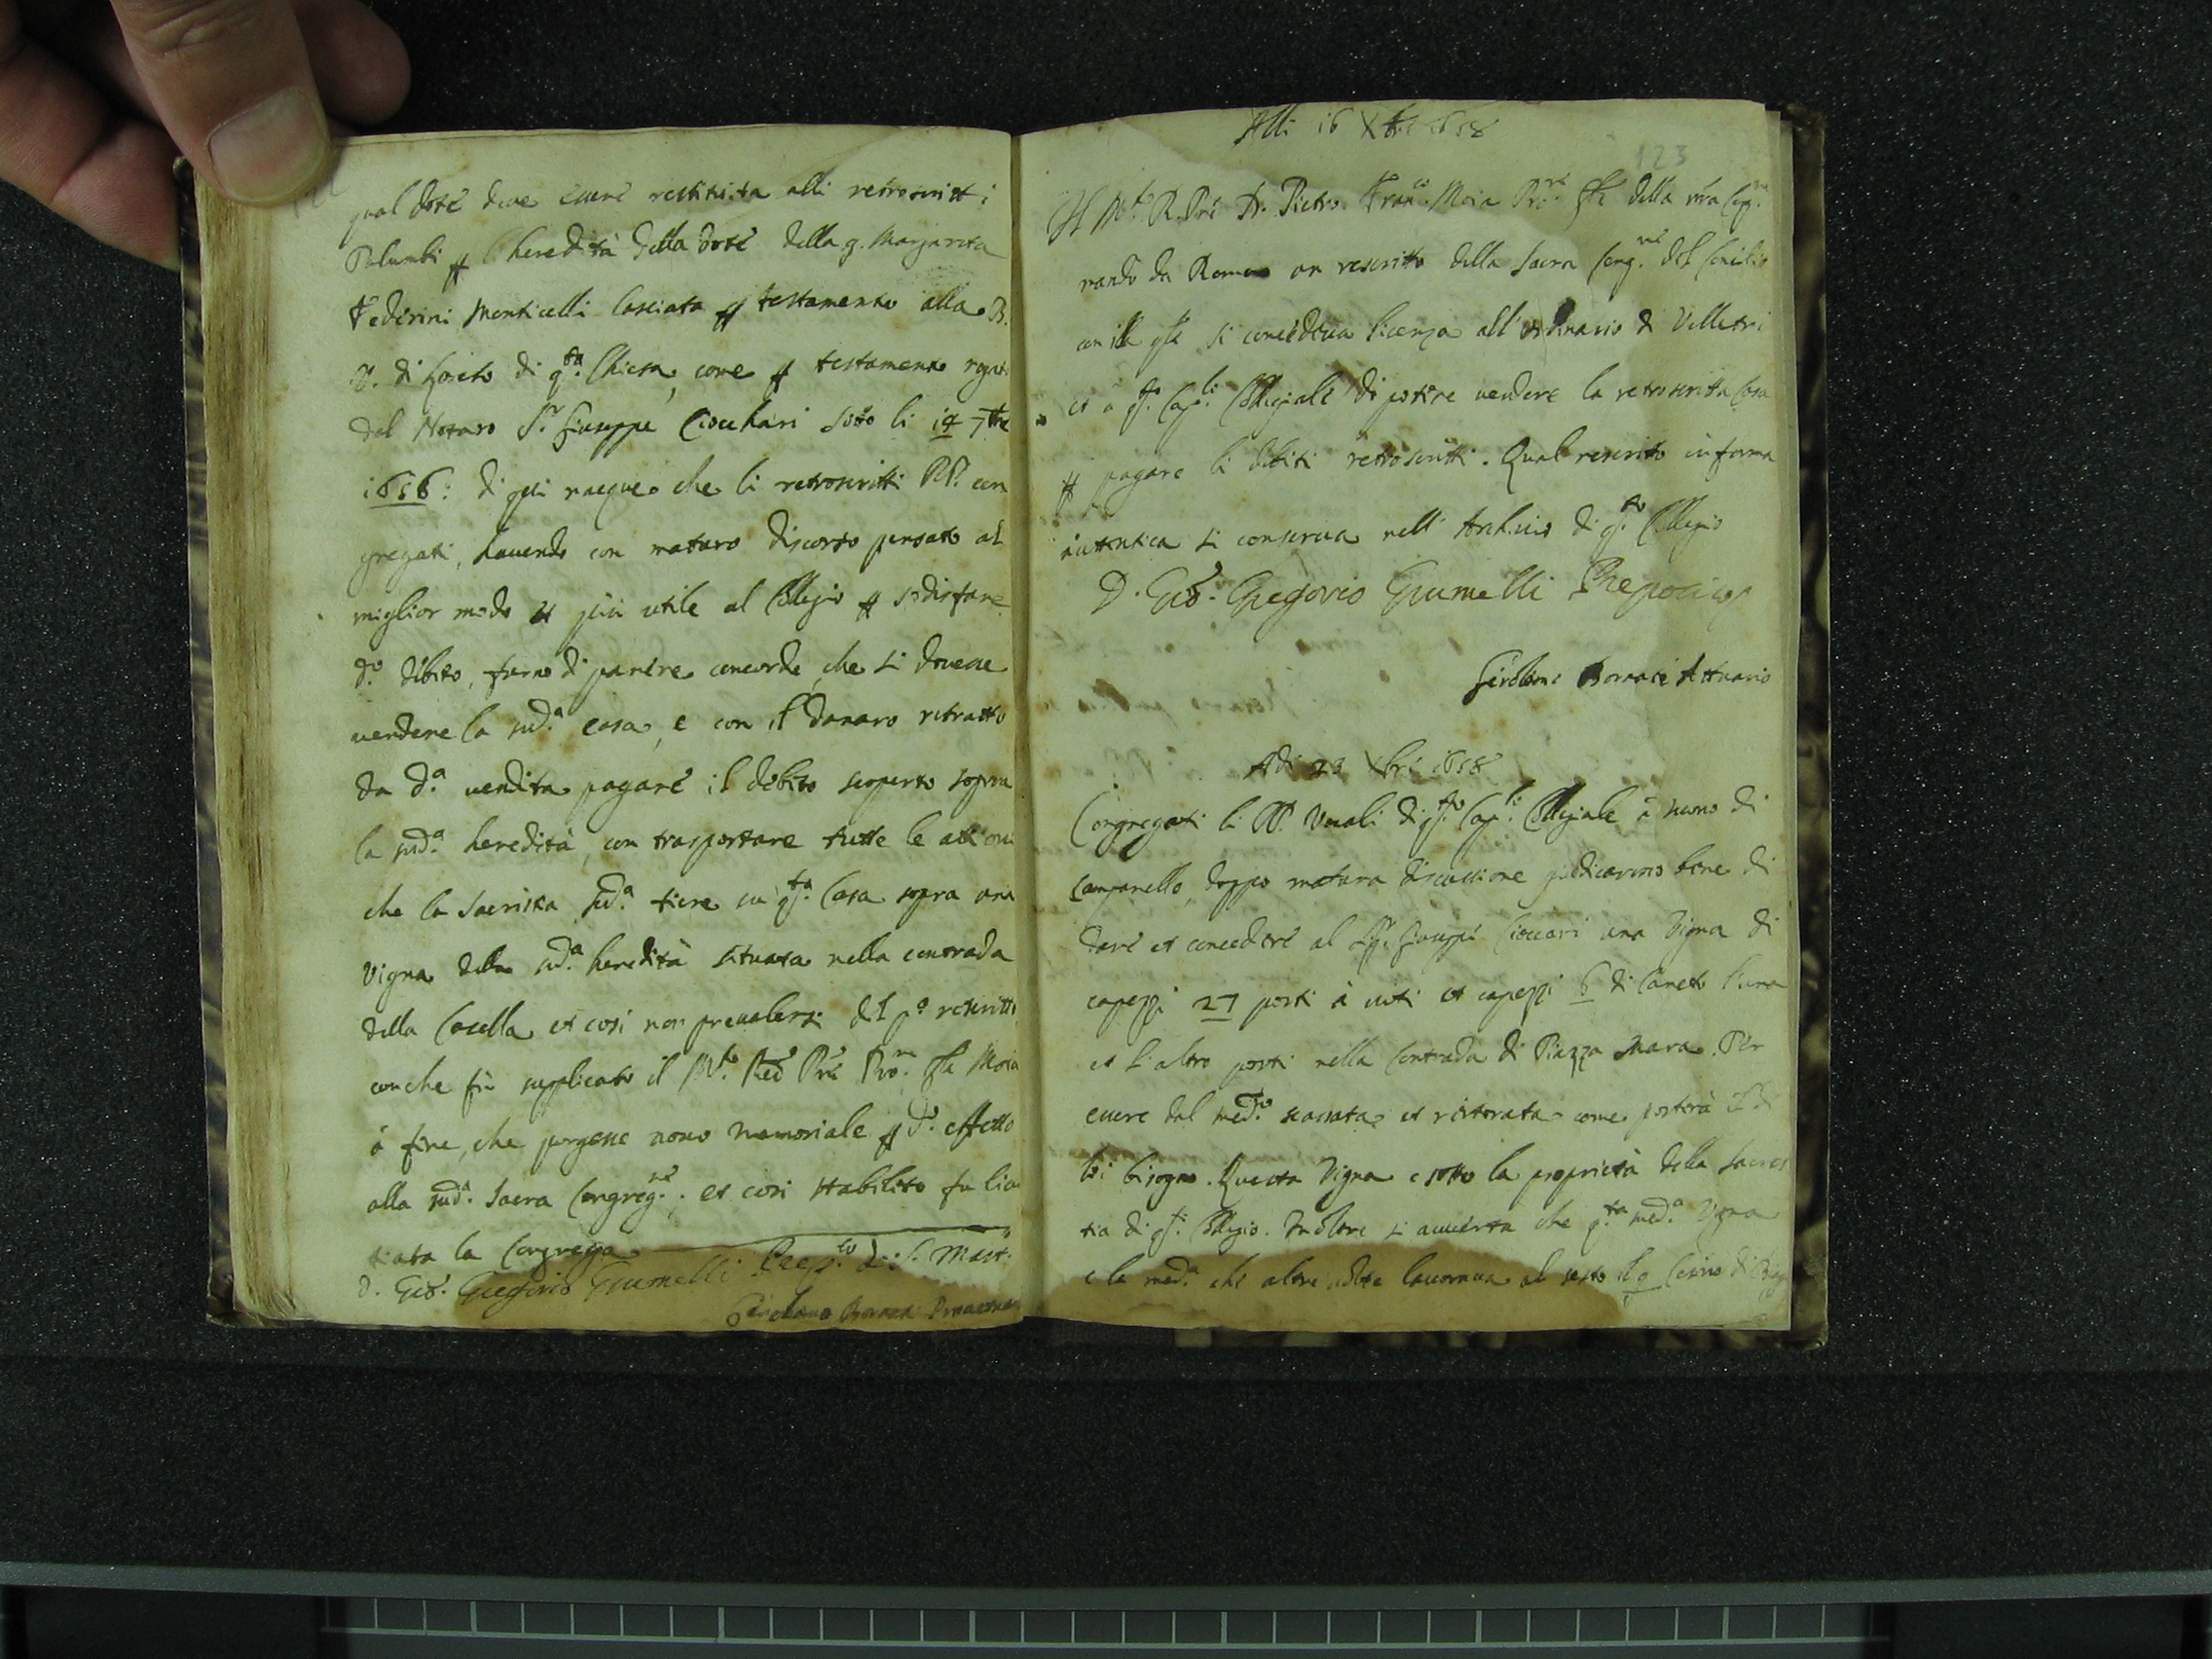 qual dote deve essere restituita alli retroscritti
Palumbi p heredità della dote della q. Margarita
Federini Monticelli lasciata p testamento alla B.
V. di Loreto di q.ta Chiesa, come p testamento rogato
dal Notaro S.r Giuseppe Ciocchari sotto li 14 7bre
1656: di qui nacque che li retroscritti PP. con
gregati, havendo con maturo discorso pensato al
miglior modo et più utile al Collegio p sodisfare
d.o debito, furno di parere concorde, che si dovesse
vendere la sud.a casa, e con il danaro ritratto
da d.a vendita pagare il debito scoperto sopra
la sud.a heredità, con trasportare tutte le attioni
che la sacristia sud.a tiene su q.ta Casa sopra una
Vigna della sud.a heredità situata nella contrada
della Casella et così non prevalersi del p.o rescritto
con che fù supplicato il M.to Red Pré Pro.re Gle Moia
à fine, che porgesse novo memoriale p d.o effetto
alla sud.a Sacra Congreg.ne; et così stabilito fu licen
tiata la Congrega
D. Gio. Gregorio Giumelli Prep.to di S. Mart.
Girolamo Borace
Alli 16 Xbre 1658
123
Il M.to R. Pré D. Pietro Fran.co Moia Pro.re Gle della nra Cog.ne
mandò da Roma un rescritto della Sacra Cong.ne del Concilio
con il si concedeva licenza all'ordinario di Velletri
et à q.to Cap.lo Collegiale di potere vendere la retroscritta Casa
p pagare li debiti retroscritti. Qual rescritto in forma
autentica si conserva nell'Archivio di q.to Collegio
D. Gio. Gregorio Giumelli
Girolamo Borace Attuario
Adi 23 Xbre 1658
Congregati li PP. Vocali di q.to Cap.lo Collegiale à suono di
campanello, doppo matura discussione giudicarono bene di
dare et concedere al Sig. Giuseppe Cioccari una Vigna di
capezzi 27 posti à viti et capezzi 6 di Caneto l'uno
et l'altro posti nella Contrada di Piazza Mara. Per
essere dal med.o scassata et ristorata come porterà il di
lei bisogno. Questa Vigna è sotto la proprietà della Sacres
tia di q.to Collegio. Inoltre si avverta che q.ta med.a Vigna
è la med.a che altre volte lavorava al sesto il q Cesino di